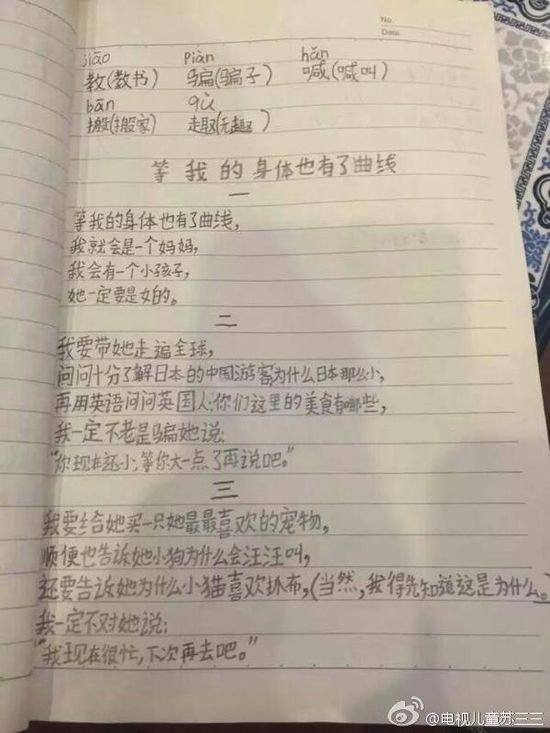 No.
Date.
jiāo piàn hǎn
教(教书) 骗(骗子) 喊(喊叫)
bān qù
搬(搬家) 趣(无趣)
等我的身体也有了曲线
一
等我的身体也有了曲线,
我就会是一个妈妈,
我会有一个小孩子,
她一定要是女的。
二
我要带她走遍全球,
问问十分了解日本的中国游客为什么日本那么小,
再用英语问问英国人:你们这里的美食有哪些,
我一定不老是骗她说:
“你现在还小;等你大一点了再说吧。”
三
我要给她买一只她最最喜欢的宠物,
顺便也告诉她小狗为什么会汪汪叫,
还要告诉她为什么小猫喜欢抓布,(当然,我得先知道这是为什么。
我一定不对她说:
“我现在很忙,下次再去吧。”
@电视儿童苏三三